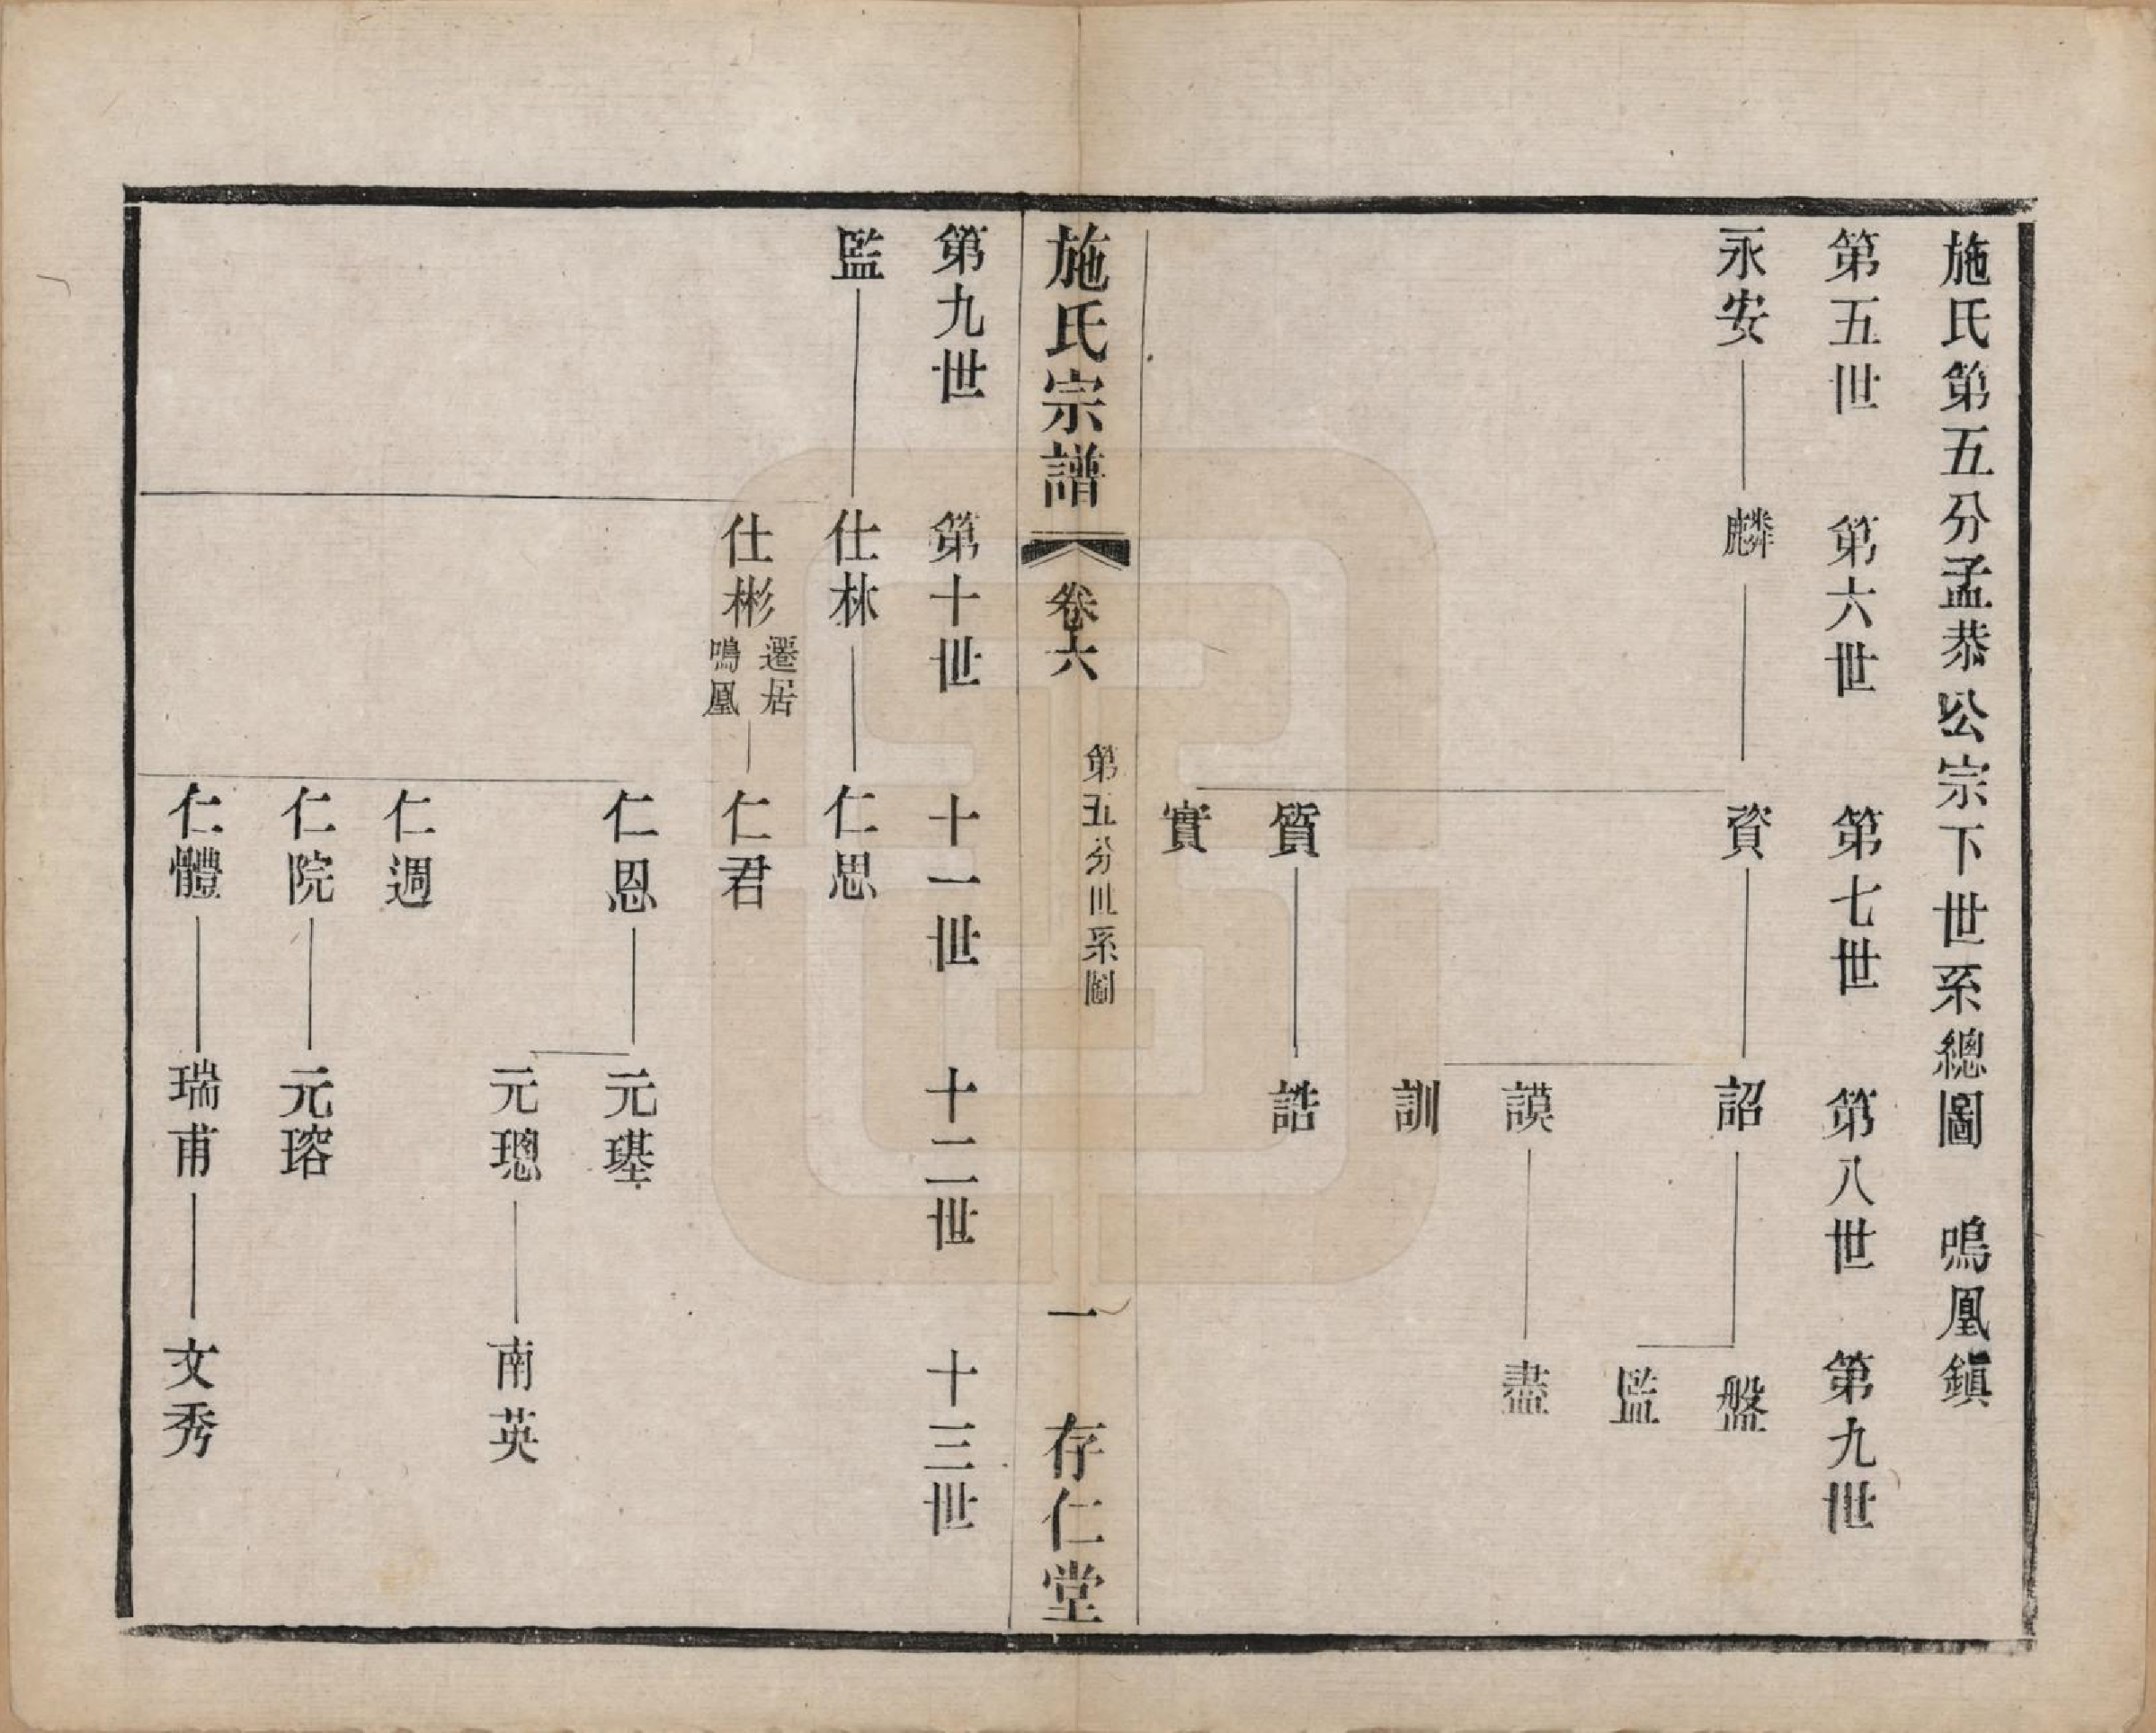 施氏第五分孟恭公宗下世系總圖　鳴鳳鎮
第五世　第六世　第七世　第八世　第九世
永安　麟　資　詔　盤
監
謨　盡
訓
質　誥
實
施氏宗譜　卷六　第五分世系圖　一　存仁堂
第九世　第十世　十一世　十二世　十三世
監　仕林　仁思
仕彬　遷居鳴鳳　仁君
仁恩　元璂
元璁　南英
仁週
仁院　元瑢
仁體　瑞甫　文秀